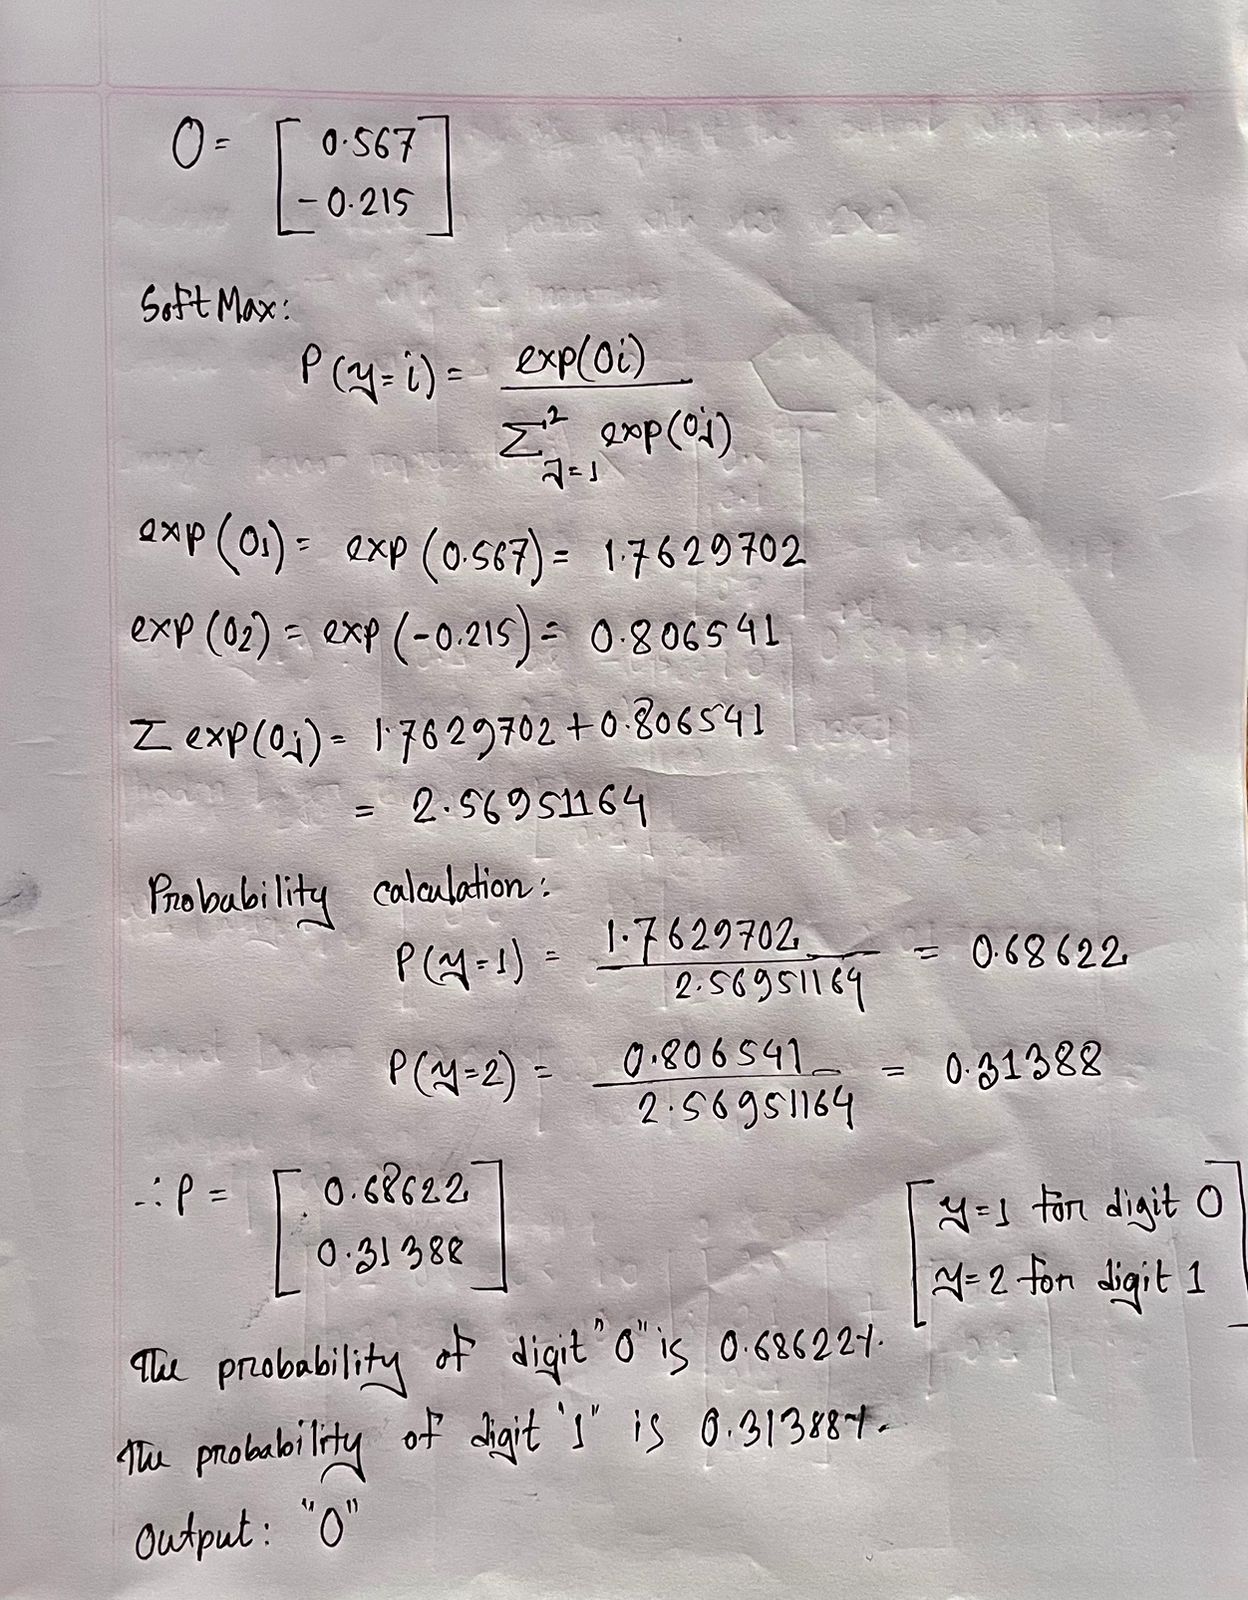 O = [ 0.567
-0.215 ]
SoftMax:
P(y=i) = exp(Oi) / Σ²j=1 exp(Oj)
exp(O1) = exp(0.567) = 1.7629702
exp(O2) = exp(-0.215) = 0.806541
Σ exp(Oj) = 1.7629702 + 0.806541
= 2.56951164
Probability calculation:
P(y=1) = 1.7629702 / 2.56951164 = 0.68622
P(y=2) = 0.806541 / 2.56951164 = 0.31388
∴ P = [ 0.68622
0.31388 ]
[ y=1 for digit 0
y=2 for digit 1 ]
The probability of digit "0" is 0.68622%.
The probability of digit '1" is 0.31388%.
Output: "0"